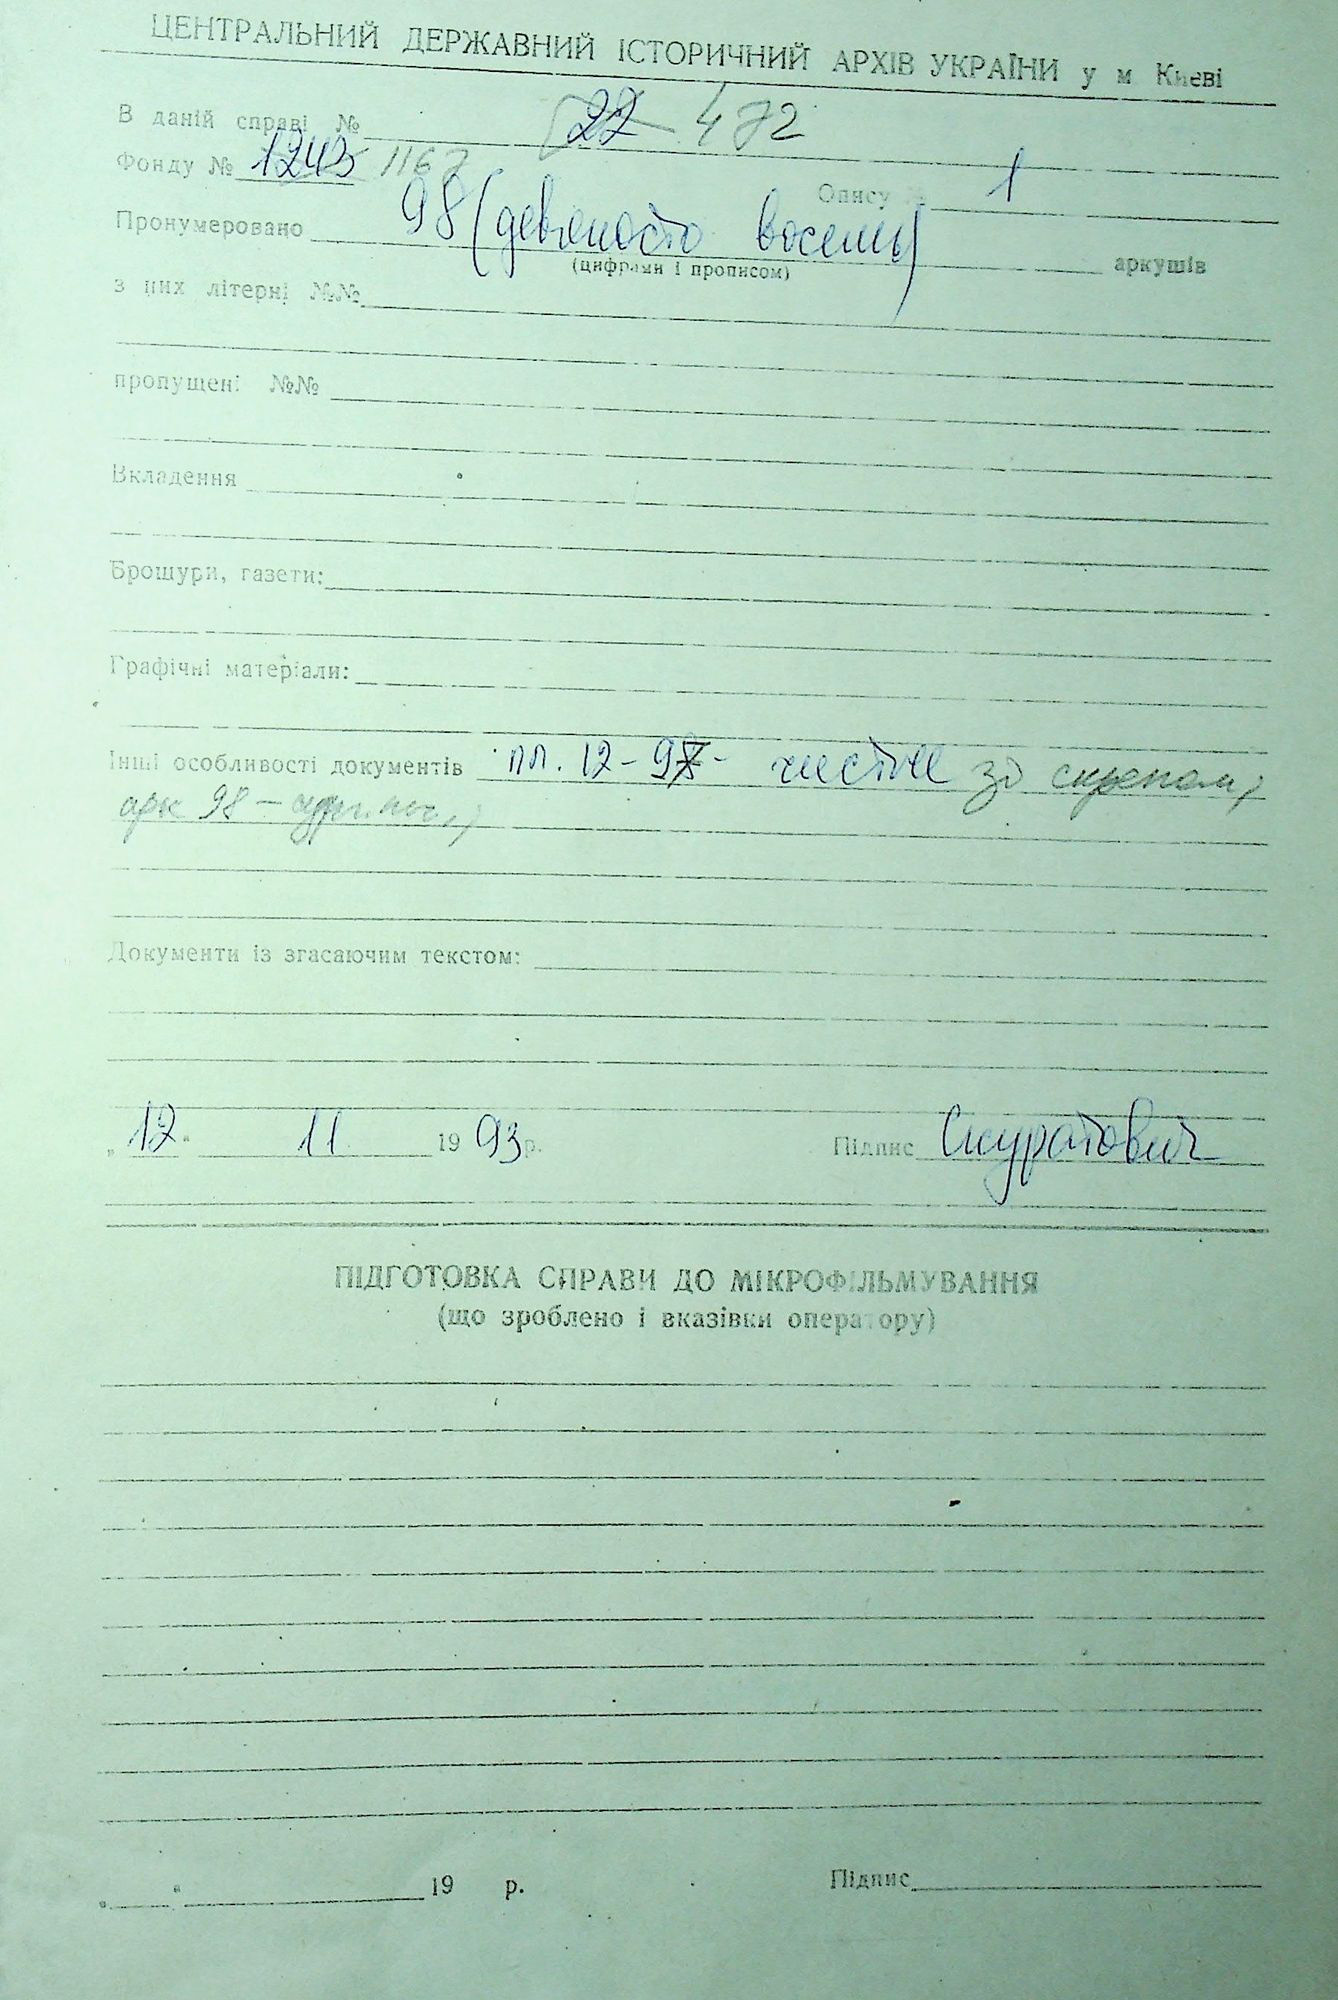 ЦЕНТРАЛЬНИЙ ДЕРЖАВНИЙ ІСТОРИЧНИЙ АРХІВ УКРАЇНИ у м Києві
В даній справі № 22 472
Фонду № 1243 1167 Опису № 1
Пронумеровано 98 (девяносто восемь) аркушів
(цифрами і прописом)
з них літерні №№
пропущені №№
Вкладення
Брошури, газети:
Графічні матеріали:
Інші особливості документів пл. 12-97- чистые зі скрепом,
арк 98 —
Документи із згасаючим текстом:
„ 12 “ 11 19 93 р. Підпис Скуратович
ПІДГОТОВКА СПРАВИ ДО МІКРОФІЛЬМУВАННЯ
(що зроблено і вказівки оператору)
„ “ 19 р. Підпис